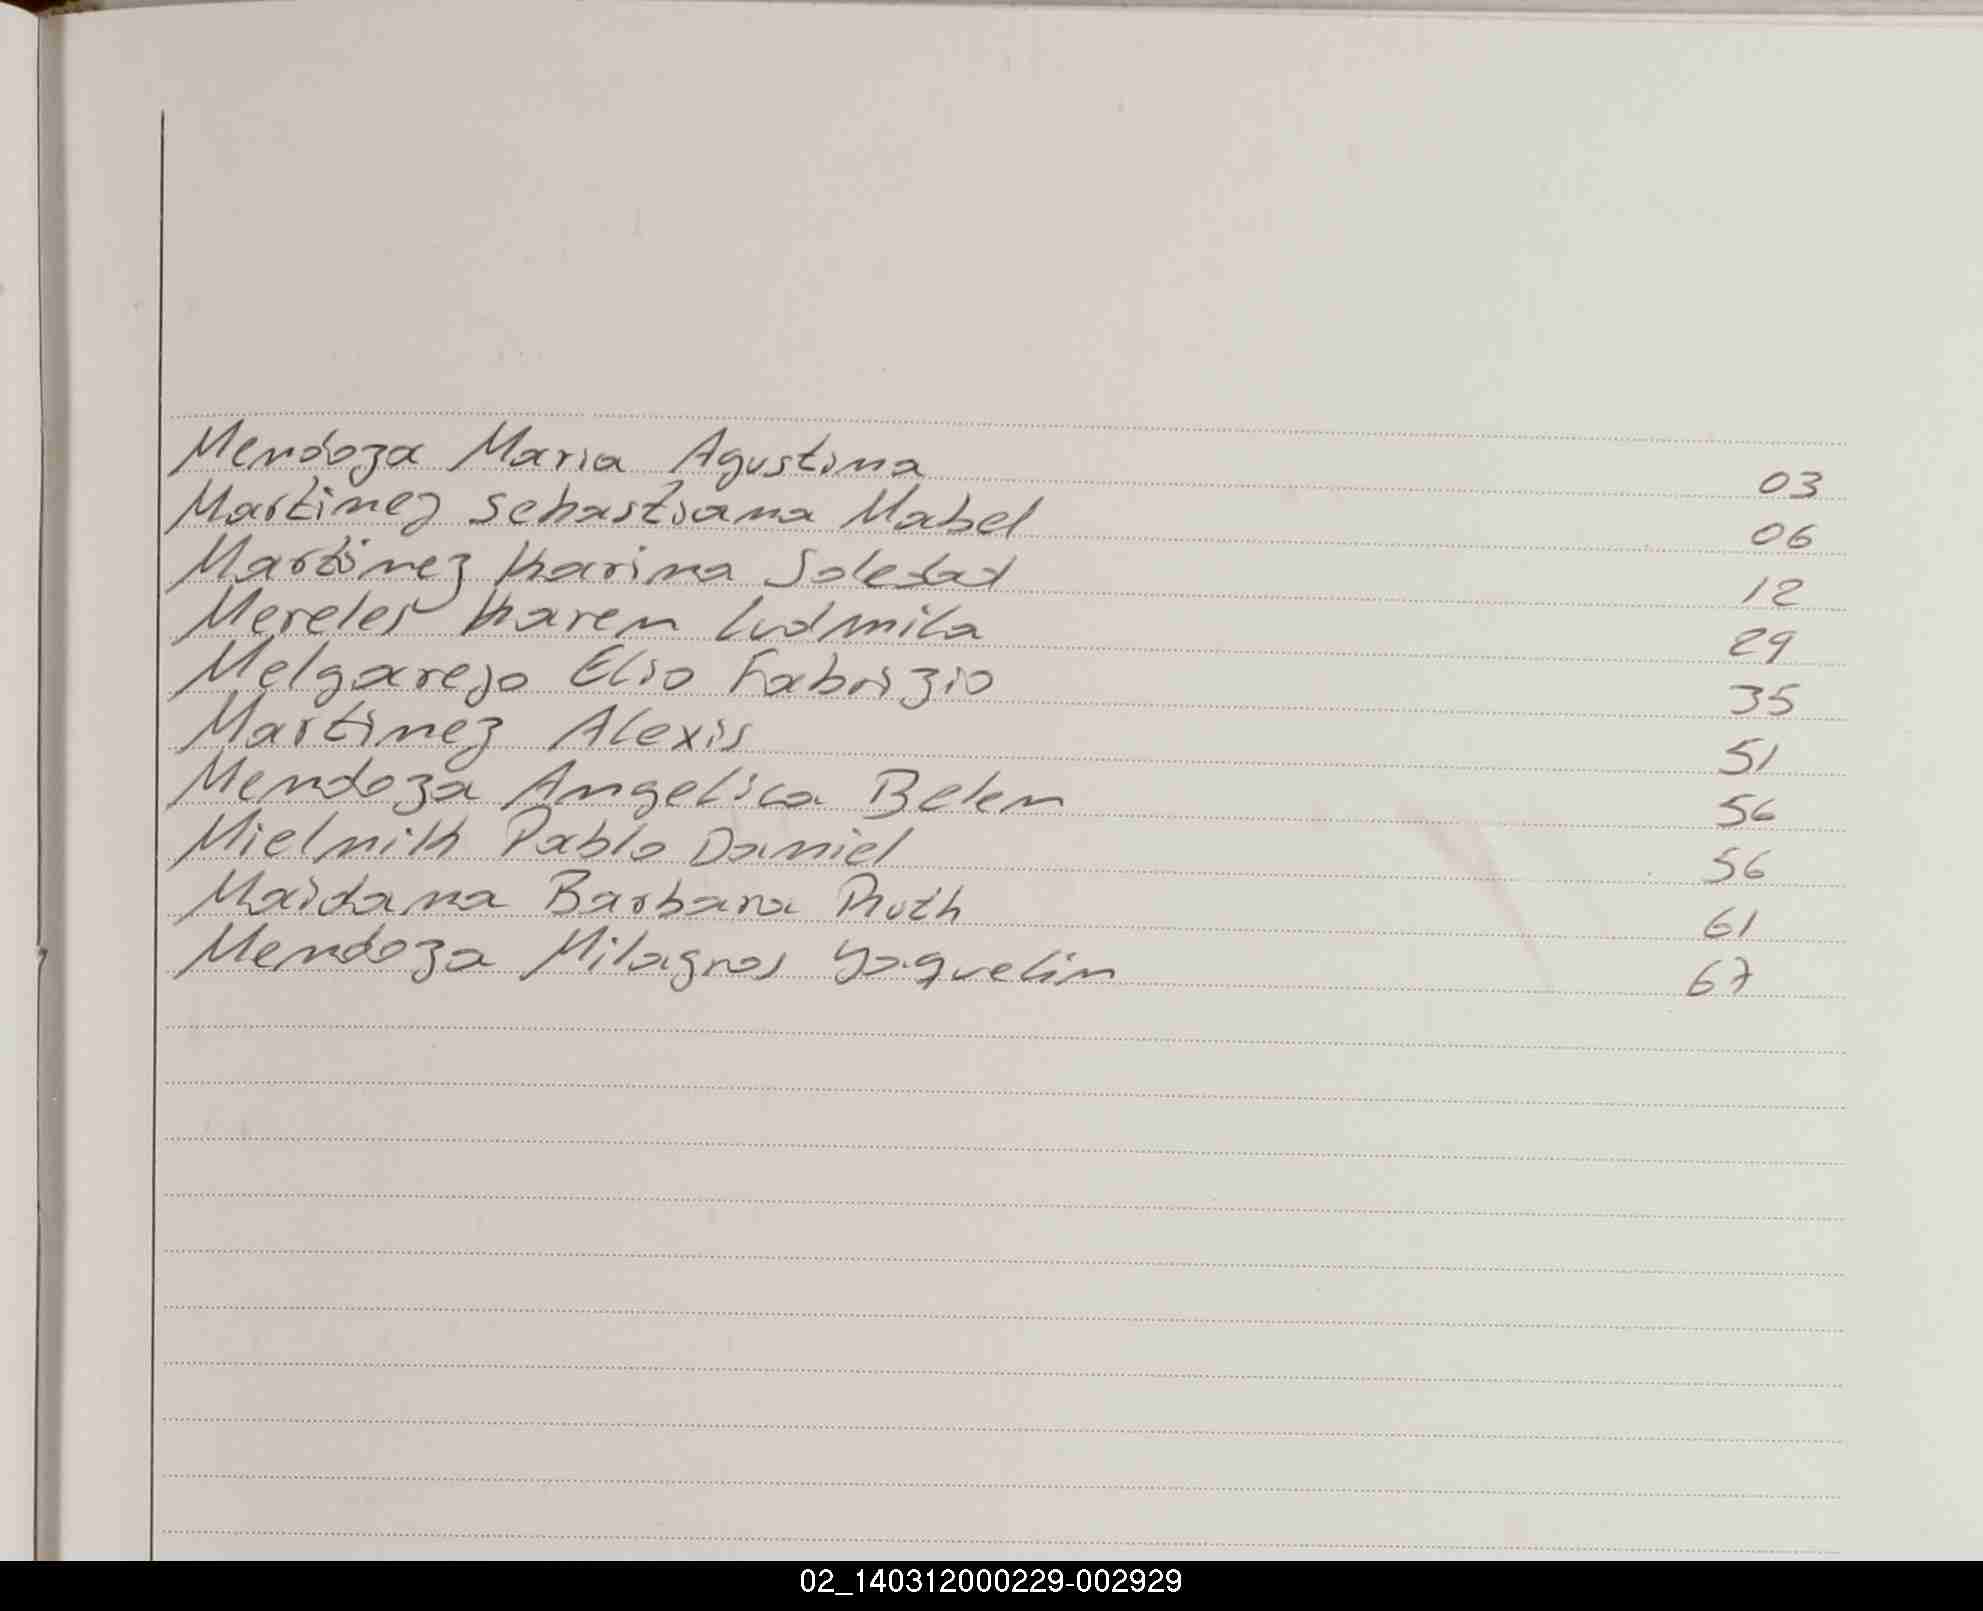 Mendoza Maria Agustina 03
Martinez Sebastiana Mabel 06
Martinez Karina Soledad 12
Mereles Karen Ludmila 29
Melgarejo Elio Fabrizio 35
Martinez Alexis 51
Mendoza Angelica Belen 56
Mielnik Pablo Daniel 56
Maidana Barbara Ruth 61
Mendoza Milagros Yaquelin 67
02_140312000229-002929